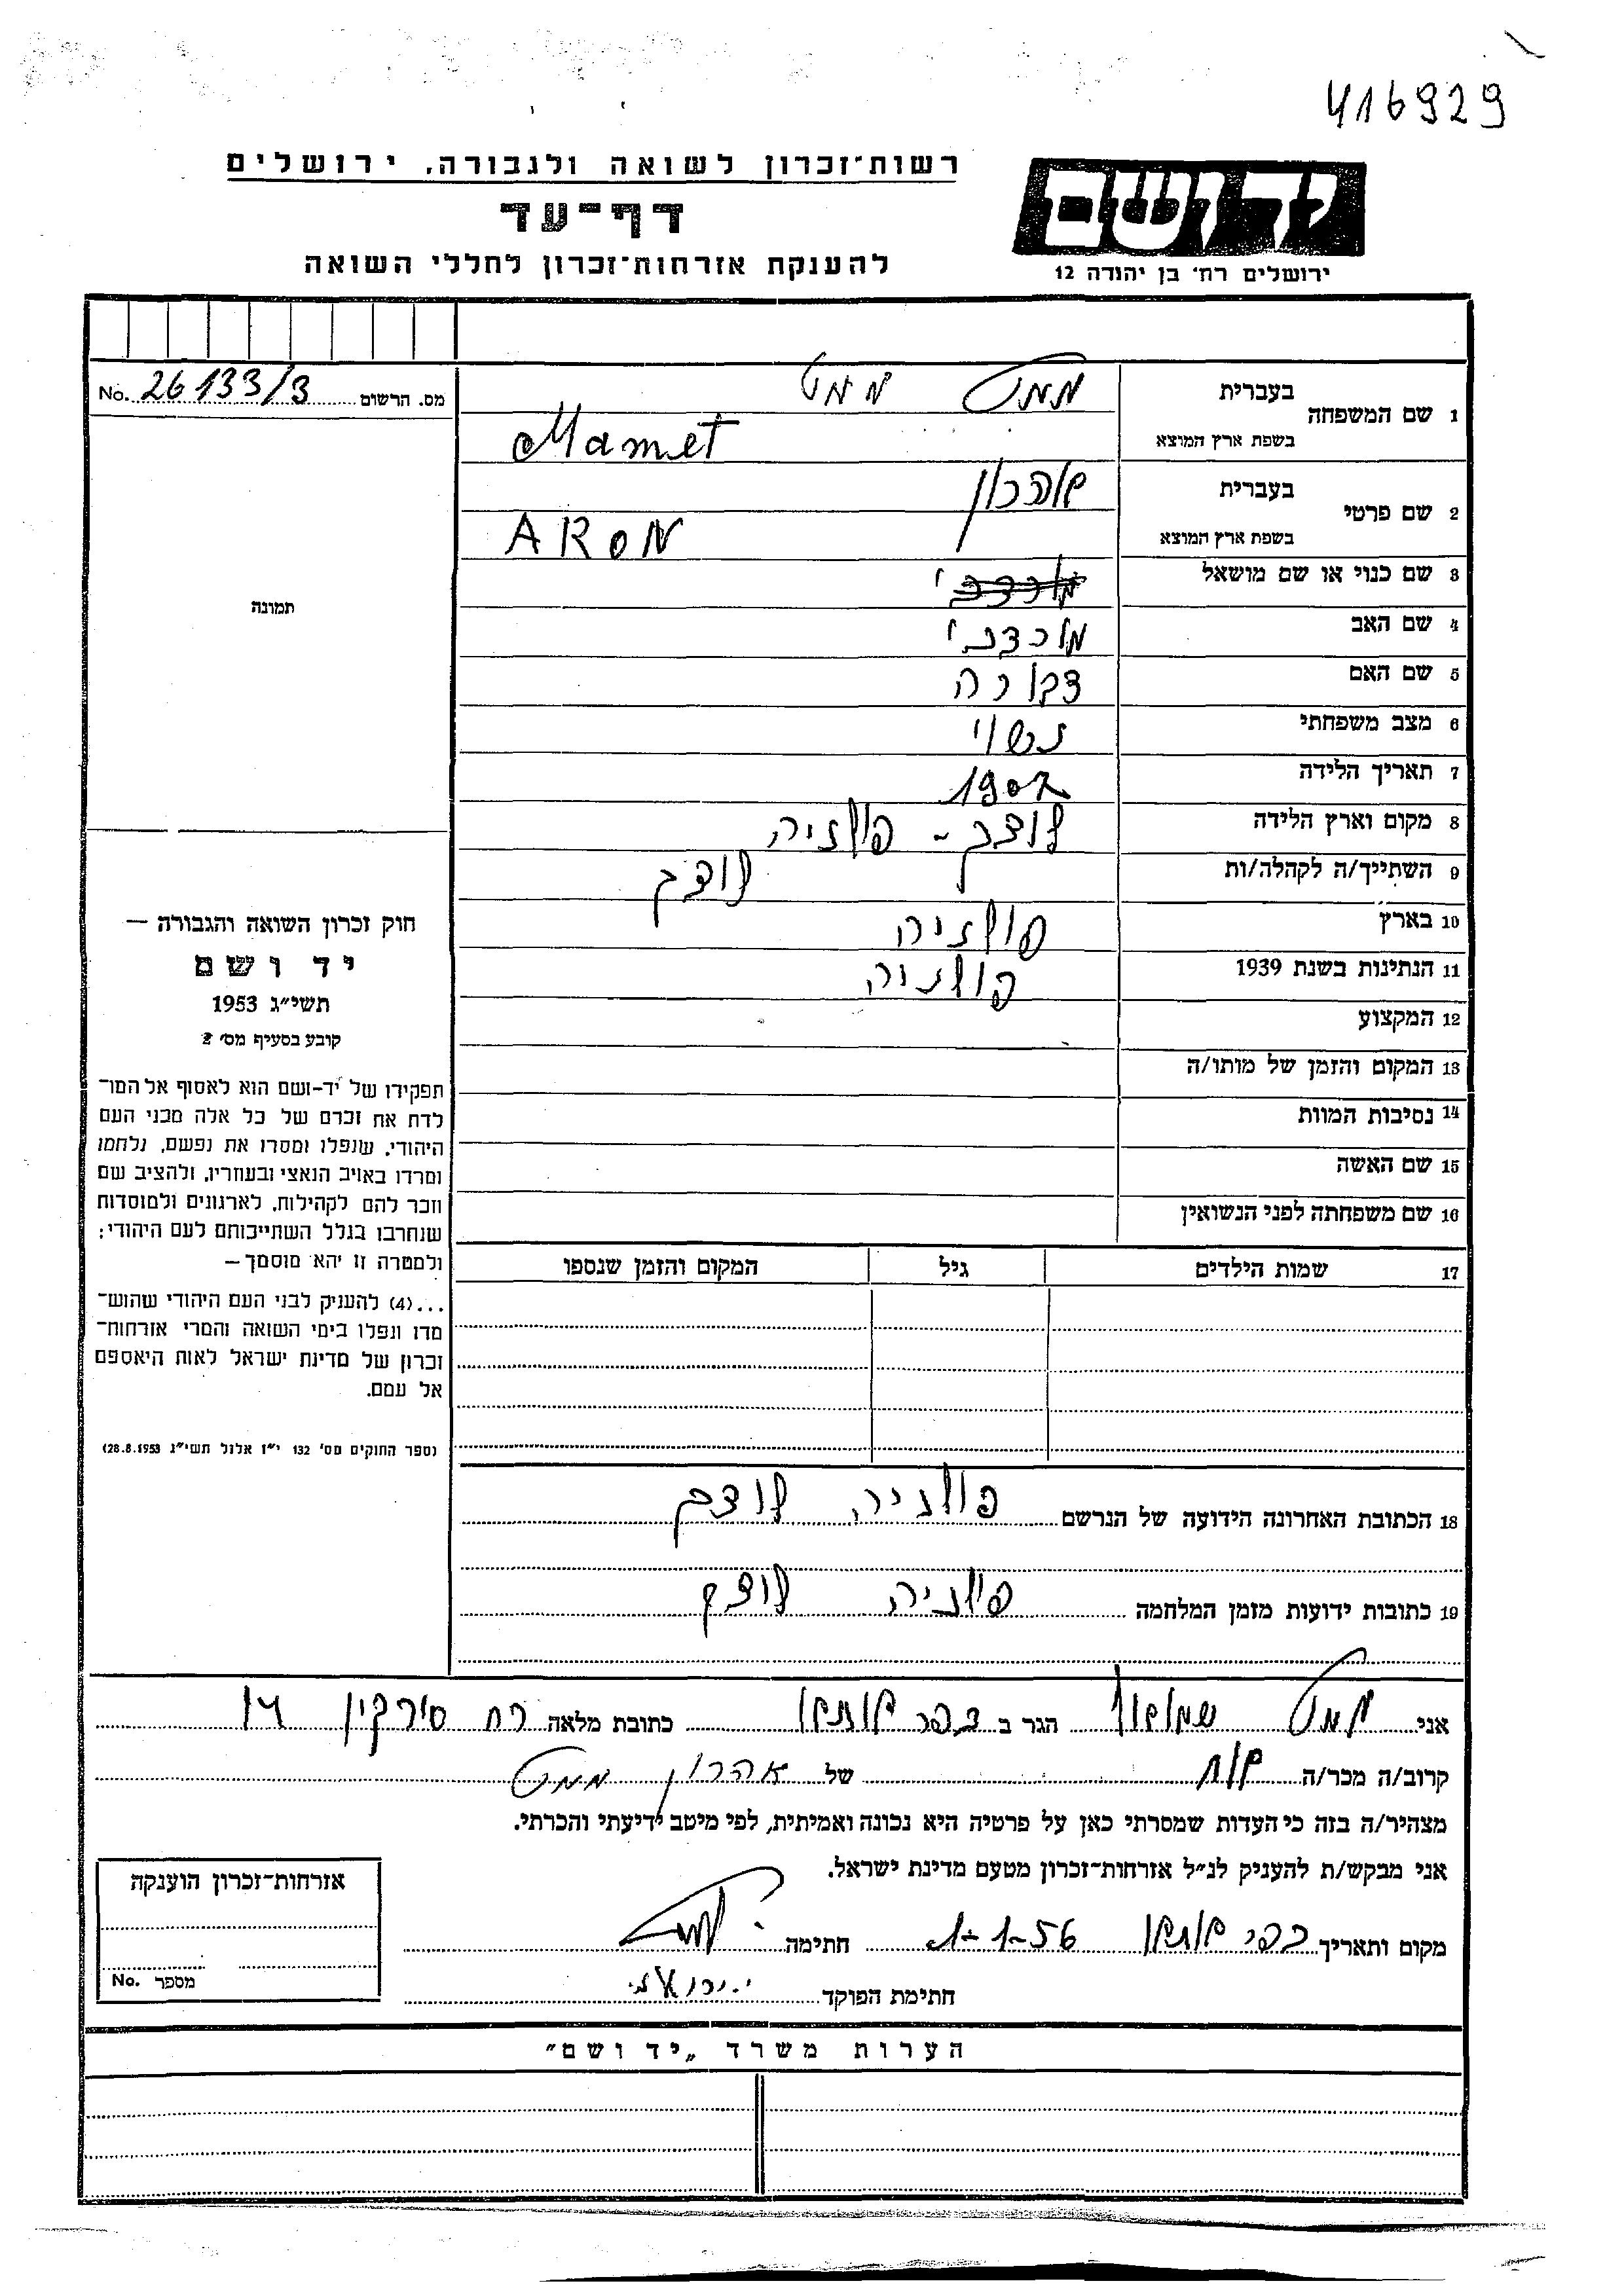 416929
יד ושם
ירושלים רח' בן יהודה 12
רשות־זכרון לשואה ולגבורה, ירושלים
דף־עד
להענקת אזרחות־זכרון לחללי השואה
מס. הרשום 26133/3 No.
1 שם המשפחה בעברית ממט ממט
בשפת ארץ המוצא Mamet
2 שם פרטי בעברית אהרון
בשפת ארץ המוצא ARON
3 שם כנוי או שם מושאל מורדכי
4 שם האב מורדכי
5 שם האם דבורה
6 מצב משפחתי נשוי
7 תאריך הלידה 1907
8 מקום וארץ הלידה לודג - פולניה
9 השתייך/ה לקהלה/ות
10 בארץ פולניה
11 הנתינות בשנת 1939 פולניה
12 המקצוע
13 המקום והזמן של מותו/ה
14 נסיבות המוות
15 שם האשה
16 שם משפחתה לפני הנשואין
17 שמות הילדים גיל המקום והזמן שנספו
18 הכתובת האחרונה הידועה של הנרשם פולניה
19 כתובות ידועות מזמן המלחמה פולניה
תמונה
חוק זכרון השואה והגבורה —
יד ושם
תשי"ג 1953
קובע בסעיף מס' 2
תפקידו של יד-ושם הוא לאסוף אל המו־
לדת את זכרם של כל אלה מבני העם
היהודי, שנפלו ומסרו את נפשם, נלחמו
ומרדו באויב הנאצי ובעוזריו, ולהציב שם
וזכר להם לקהילות, לארגונים ולמוסדות
שנחרבו בגלל השתייכותם לעם היהודי;
ולמטרה זו יהא מוסמך —
...(4) להעניק לבני העם היהודי שהוש־
מדו ונפלו בימי השואה והמרי אזרחות־
זכרון של מדינת ישראל לאות היאספם
אל עמם.
(ספר החוקים מס' 132 י"ז אלול תשי"ג 28.8.1953)
אני ממט הגר ב כתובת מלאה רח סירקין 14
קרוב/ה מכר/ה אח של אהרון ממט
מצהיר/ה בזה כי העדות שמסרתי כאן על פרטיה היא נכונה ואמיתית, לפי מיטב ידיעתי והכרתי.
אני מבקש/ת להעניק לנ"ל אזרחות־זכרון מטעם מדינת ישראל.
מקום ותאריך 1-1-56 חתימה
חתימת הפוקד
אזרחות־זכרון הוענקה
מספר No.
הערות משרד „יד ושם"